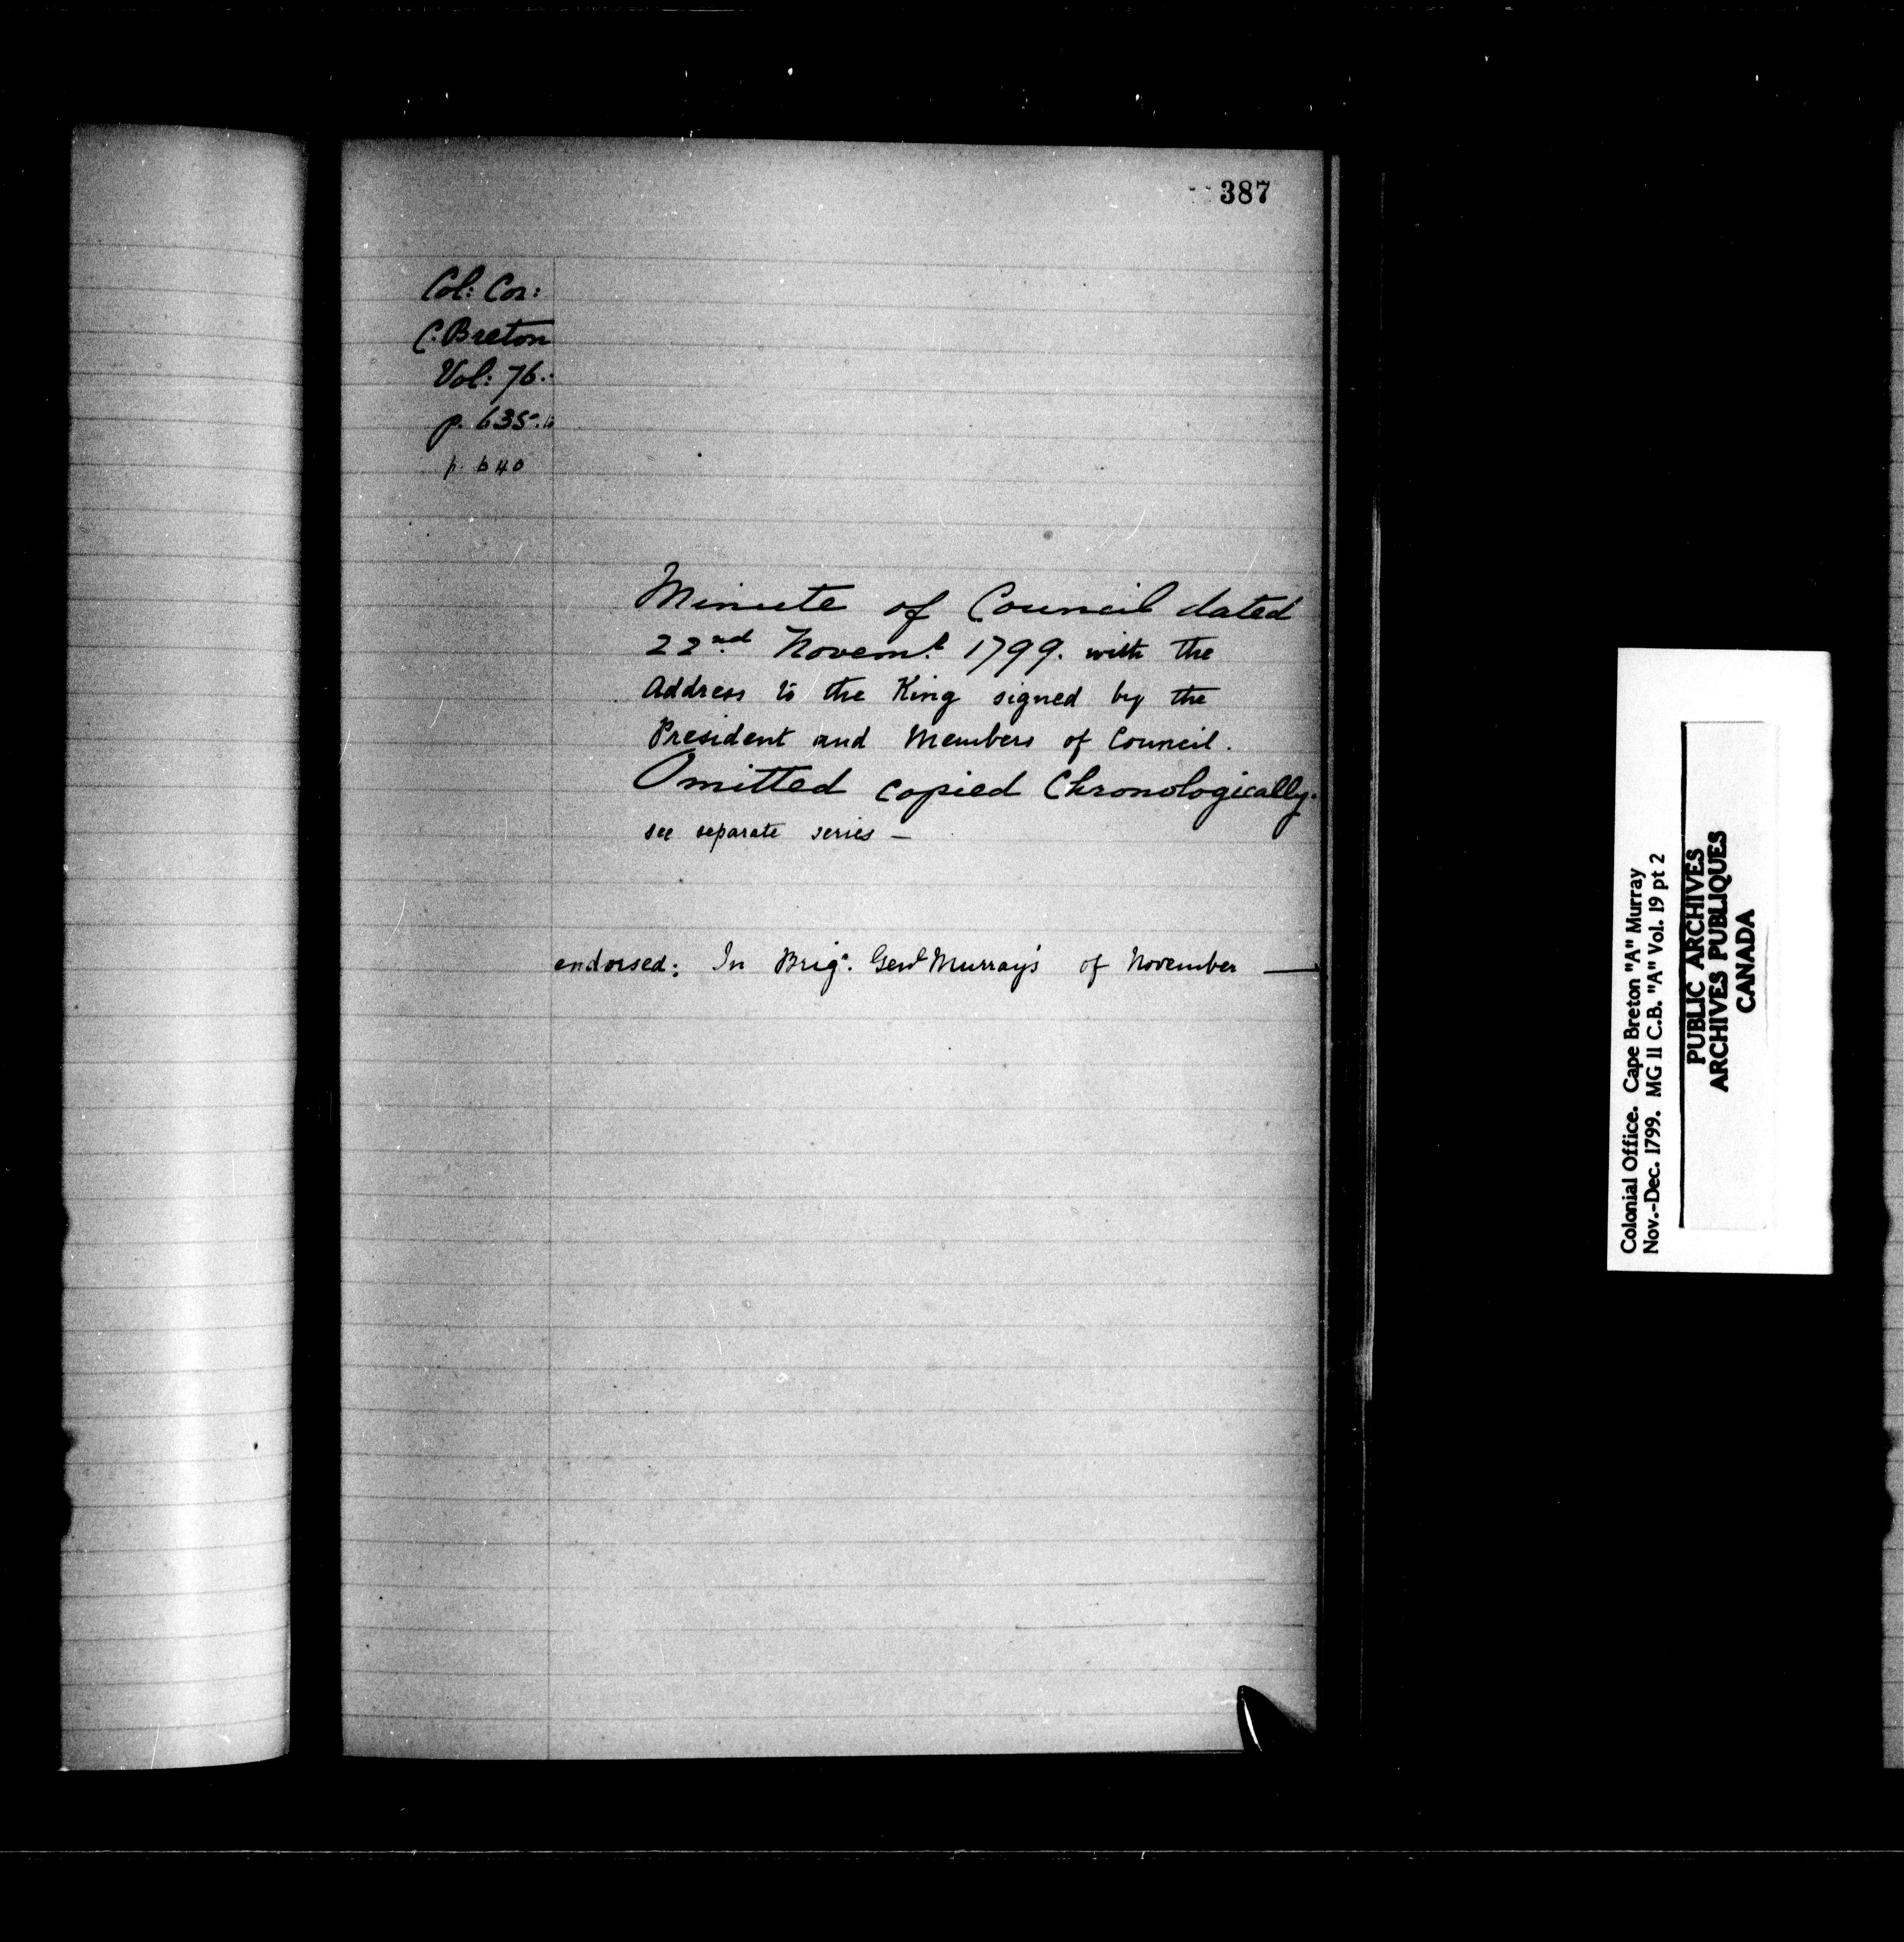 387
Col: Cor:
C. Breton
Vol: 76.
p. 635. to
p. 640
Minute of Council dated
22nd Novemr 1799. with the
Address to the King signed by the
President and Members of Council.
Omitted copied Chronologically.
see separate series —
endorsed: In Brigr. Genl Murray's of November —
Colonial Office. Cape Breton "A" Murray
Nov.-Dec. 1799. MG 11 C.B. "A" Vol. 19 pt 2
PUBLIC ARCHIVES
ARCHIVES PUBLIQUES
CANADA